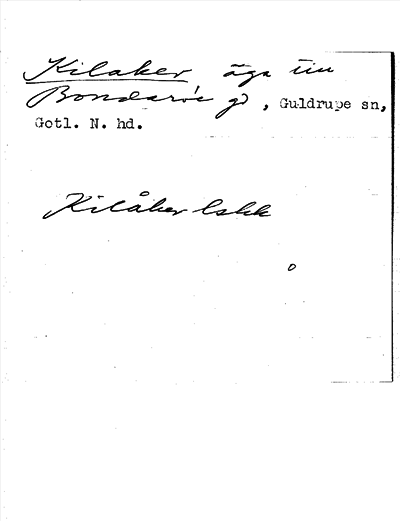 Kilaker, äga till
Bondarve gd, Guldrupe sn,
Gotl. N. hd.
Kilåker lskk